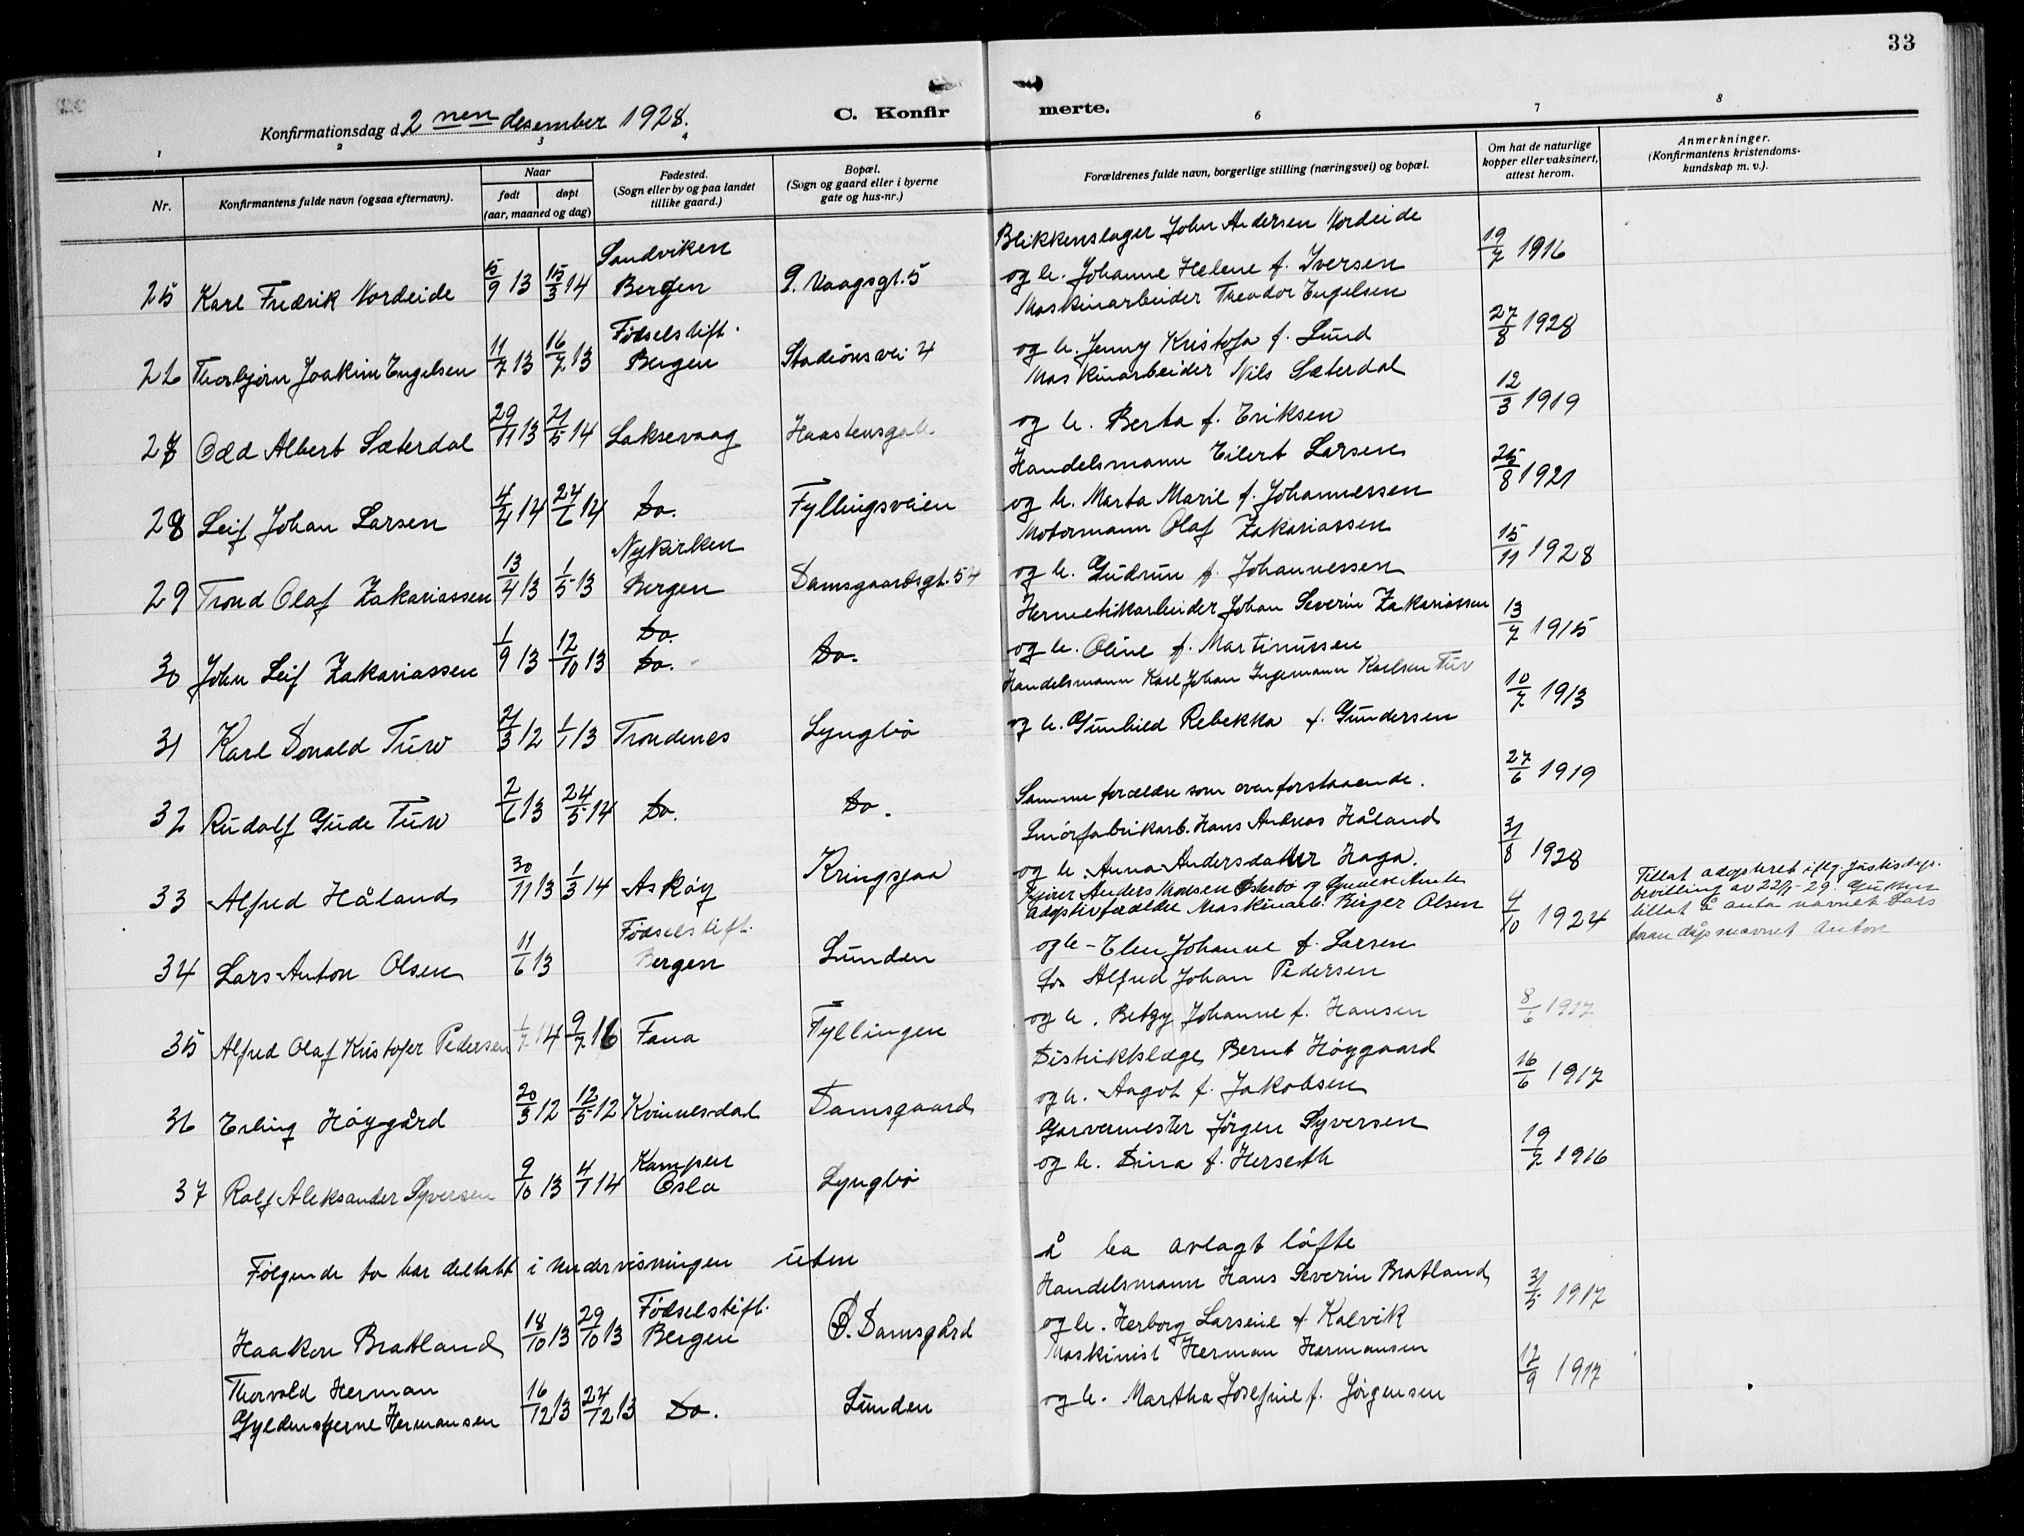 33
Konfirmationsdag d. 2 nen desember 1928.
C. Konfirmerte.
1 2 3 6 7 8
Nr.
Konfirmantens fulde navn (ogsaa efternavn).
Naar
født døpt
(aar, maaned og dag)
Fødested.
(Sogn eller by og paa landet
tillike gaard.)
Bopæl.
(Sogn og gaard eller i byerne
gate og hus-nr.)
Forældrenes fulde navn, borgerlige stilling (næringsvei) og bopæl.
Om hat de naturlige
kopper eller vaksinert,
attest herom.
Anmerkninger.
(Konfirmantens kristendoms-
kundskap m. v.).
Sandviken Blikkenslager John Andersen Nordeide
25 Karl Fredrik Nordeide 5/9 13 15/3 14 Bergen Vaagsgt. 5 og h. Johanne Helene f. Iversen 19/7 1916
Fødselstift. Maskinarbeider Theodor Engelsen
26 Thorbjørn Joakim Engelsen 11/7 13 16/7 13 Bergen Stadionsvei 4 og h. Jenny Kristofa f. Lund 27/8 1928
Maskinarbeider Nils Sæterdal
27 Odd Albert Sæterdal 29/11 13 21/5 14 Laksevaag og h. Berta f. Eriksen 12/3 1919
Handelsmann Eilert Larsen
28 Leif Johan Larsen 4/4 14 24/6 14 Do. Fyllingsveien og h. Marta Marie f. Johannessen 25/8 1921
Nykirken Motormann Olaf Zakariassen
29 Trond Olaf Zakariassen 13/4 13 1/5 13 Bergen Damsgaardsgt. 54 og h. Gudrun f. Johannessen 15/11 1928
Do. Hermetikarbeider Johan Severin Zakariassen
30 John Leif Zakariassen 1/9 13 12/10 13 Do. Do. og h. Oline f. Martinussen 13/7 1915
Handelsmann Karl Johan Ingemann Karlsen Tuv
31 Karl Donald Tuv 21/3 12 1/1 13 Trondenes Lyngbø og h. Gunhild Rebekka f. Gundersen 10/7 1913
32 Rudolf Gude Tuv 2/6 13 24/5 14 Do. Do. Samme forældre som ovenforstaaende. 27/6 1919
Smörfabrikarb. Hans Andreas Håland
33 Alfred Håland 30/11 13 1/3 14 Askøy Kringsjaa og h. Anna Andersdatter Haga. 31/8 1928
Fyrer Anders Monsen Østerbø og
Fødselstift. adoptivforældre Maskinarb. Birger Olsen
34 Lars Anton Olsen 11/6 13 Bergen Lunden og h - Elen Johanne f. Larsen 4/10 1924
Tillat adopteret iflg. Justisdep.
bevilling av
tillat å anta navnet Lars
foran dåpsnavnet Anton
Do Alfred Johan Pedersen
35 Alfred Olaf Kristofer Pedersen 1/7 14 9/7 16 Fana Fyllingen og h. Betzy Johanne f. Hansen 8/6 1917
Distriktslæge Bernt Høygaard
36 Erling Høygård 20/3 12 12/5 12 Kvinnesdal Damsgaard og h. Aagot f. Jakobsen 16/6 1917
Kampen Garvermester Jörgen Syversen
37 Rolf Aleksander Syversen 9/10 13 4/1 14 Oslo Lyngbø og h. Dina f. Herseth 19/7 1916
Følgende to har deltatt i undervisningen uten å ha avlagt løfte
Fødselstift. Handelsmann Hans Severin Bratland
Haakon Bratland 18/10 13 29/10 13 Bergen Ø. Damsgård og h. Herborg Larsine f Kalvik 31/5 1917
Thorvald Herman Maskinist Herman Hermansen
Gyldenstjerne Hermansen 16/12 13 24/12 13 Do. Lunden og h. Martha Josefine f. Jörgensen 12/9 1917